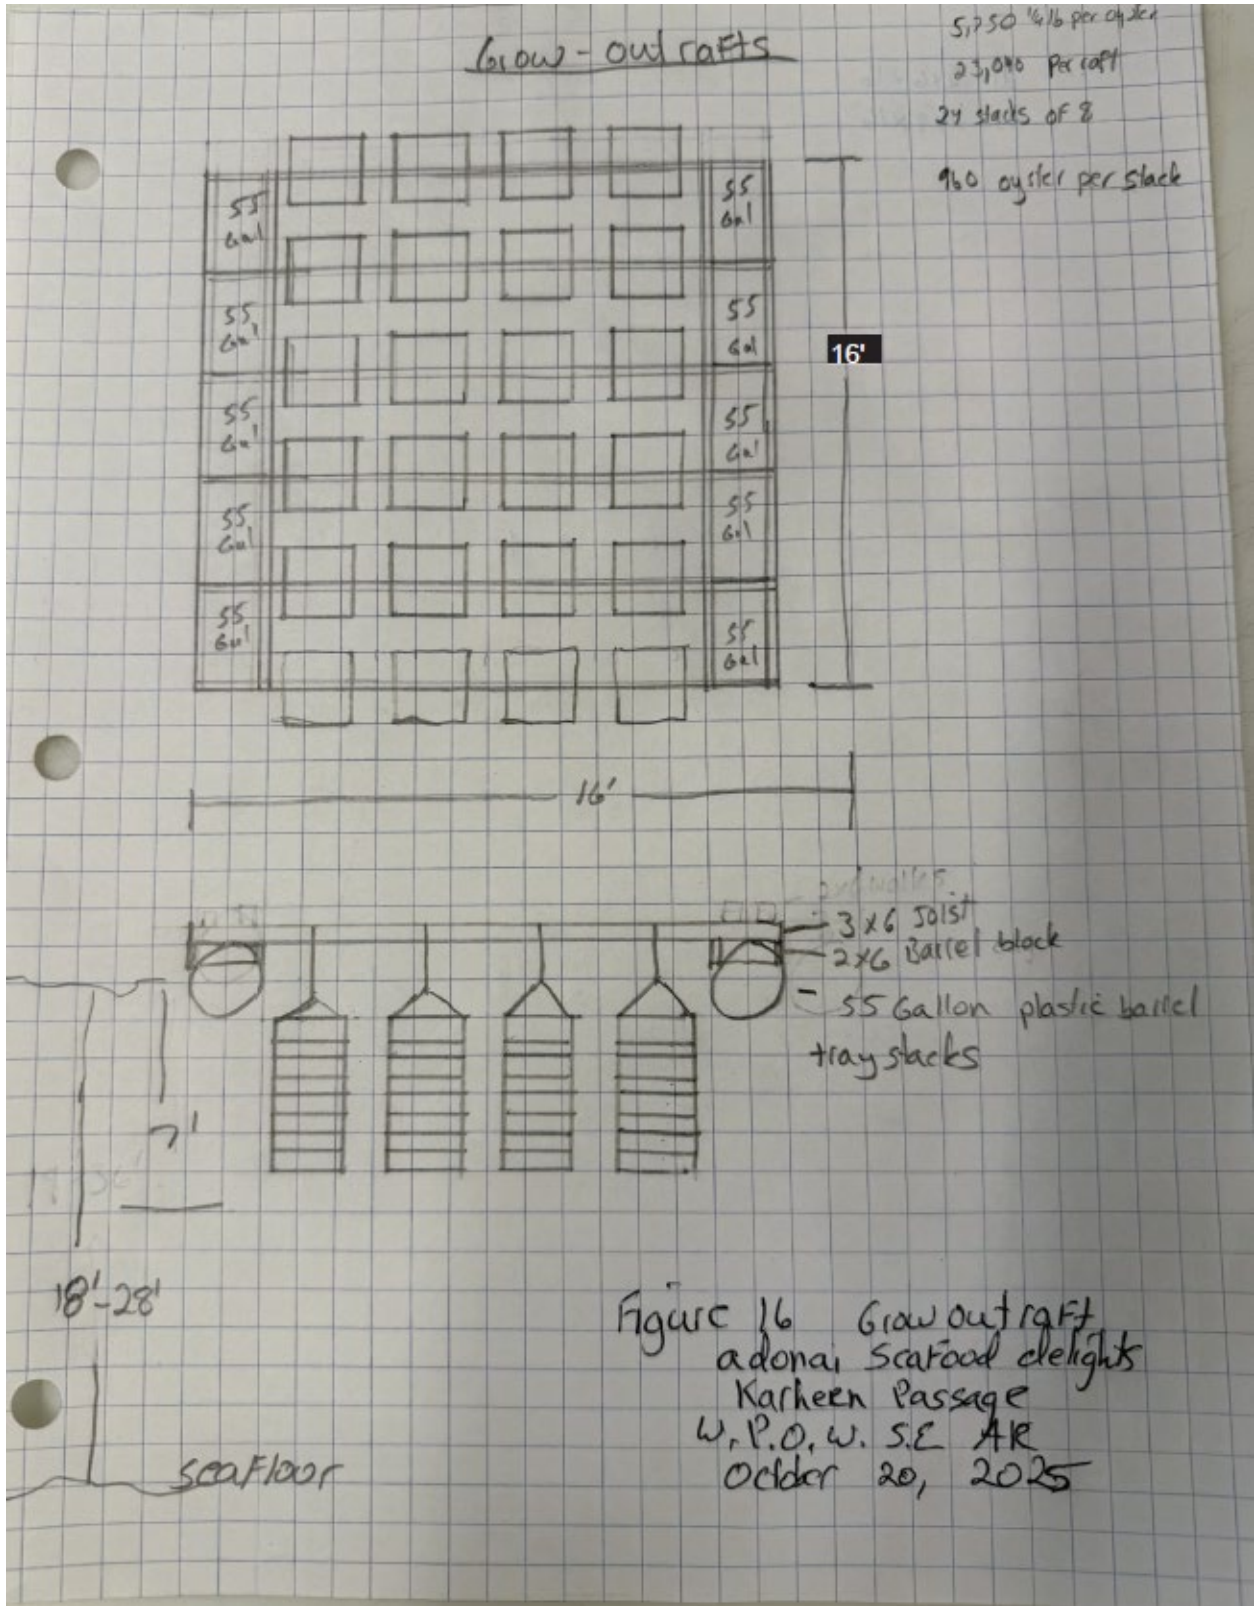 Grow-out rafts
5,750 1/4 lb per oyster
23,040 Per raft
24 stacks of 8
960 oyster per stack
55
Gal
55
Gal
55
Gal
55
Gal
55
Gal
55
Gal
55
Gal
55
Gal
55
Gal
55
Gal
16'
16'
3x6 Joist
2x6 Barrel block
55 Gallon plastic barrel
tray stacks
7'
18'-28'
seafloor
Figure 16 Grow out raft
adonai Seafood delights
Karheen Passage
W.P.O.W. S.E AK
October 20, 2025